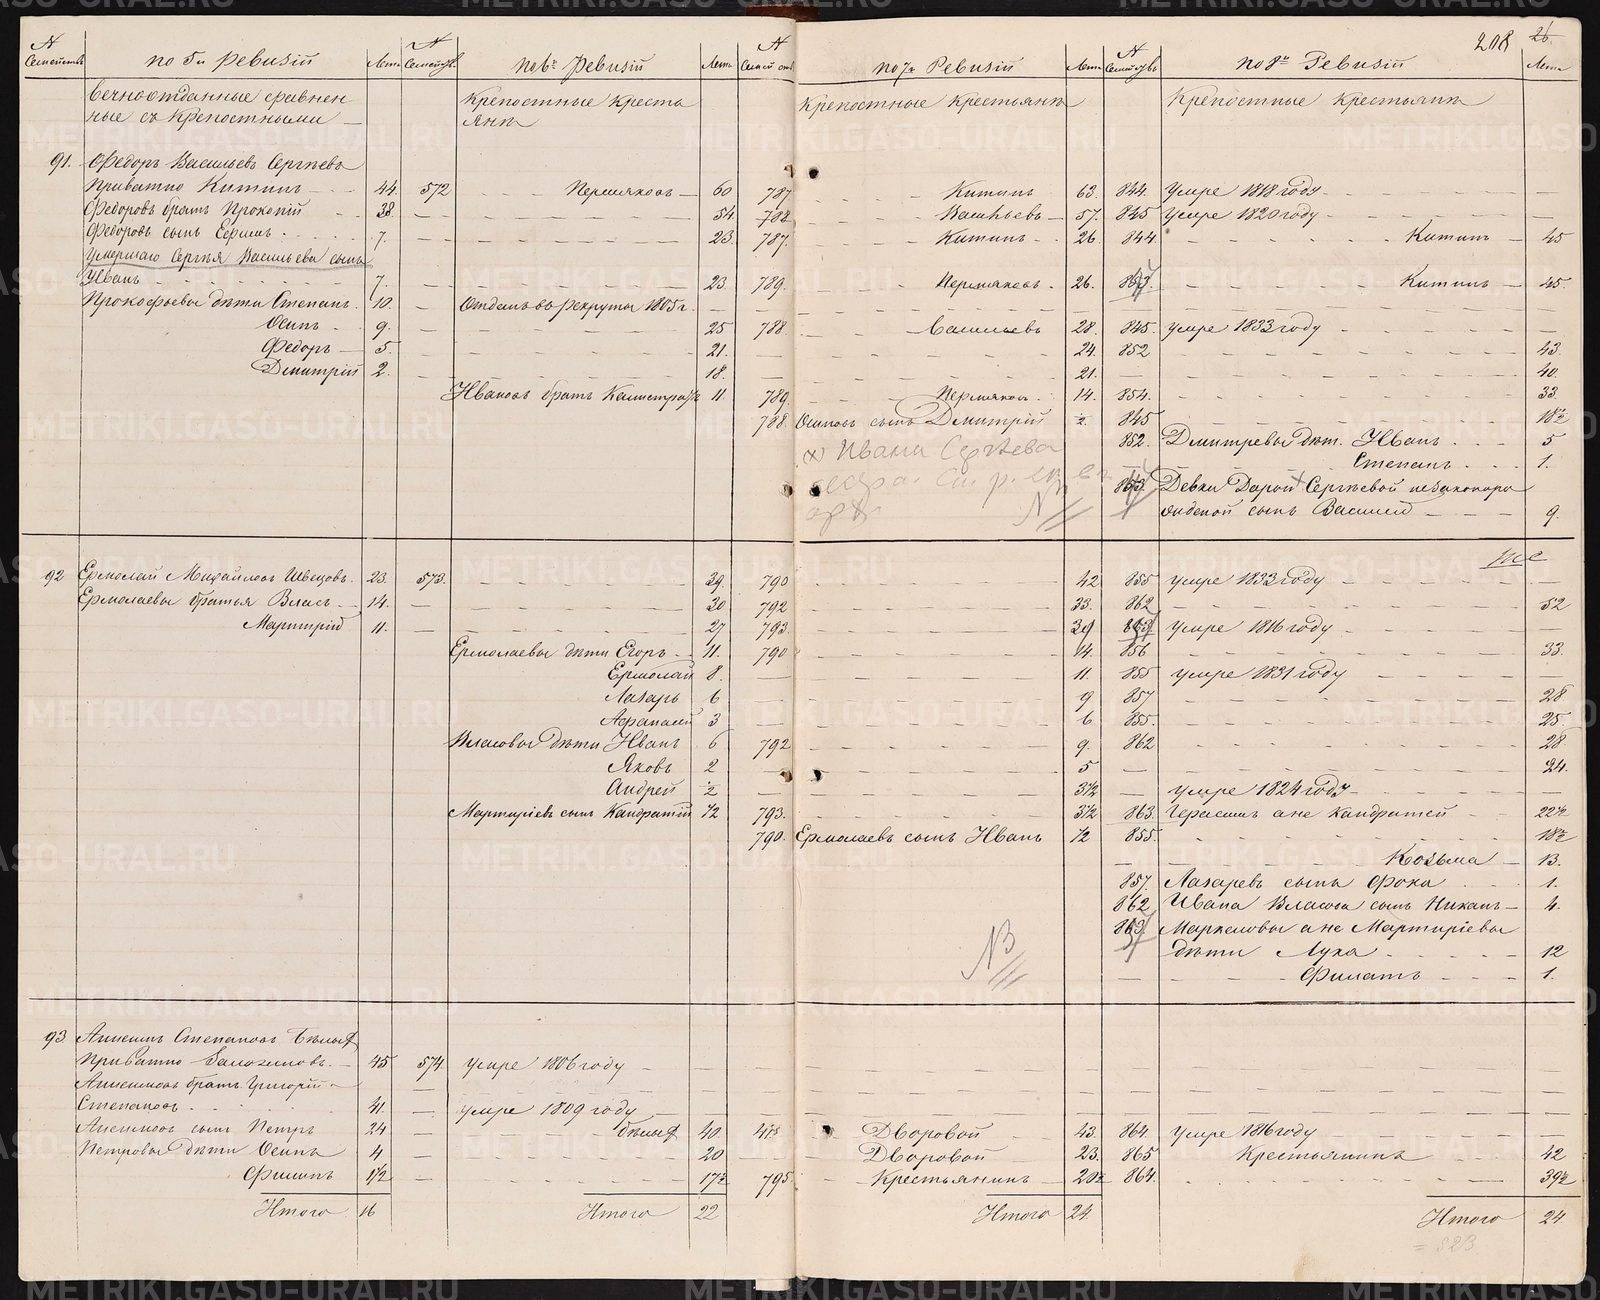 208 26
№ Семействъ по 5й ревизiи Лѣта № Семейств. по 6й Ревизiи Лѣта № Семейств по 7й Ревизiи Лѣта № Семейств по 8й Ревизiи Лѣта
Вечноотданные сравнен Крепостные Кресть Крепостные Крестьяня Крепостные Крестьяня
ные съ Крепостными яня
91. Федоръ Васильевъ Сергѣевъ
Приватно Китинъ 44. 572 Пермяковъ 60 787 Китинъ 63. 844. умре 1818 году
Федоровъ братъ Прокопiй 38. 54. 788 Васильевъ 57. 845 умре 1820 году
Федоровъ сынъ Ефимъ 7. 23. 787. Китинъ 26. 844. Китинъ 45
умершаго Сергѣя Васильева сынъ
Иванъ 7. 23. 789. Пермяковъ 26. Китинъ 45.
Прокофьевы дѣти Степанъ. 10. Отданъ въ рекруты 1805 г.
Осипъ 9. 25 788. Васильевъ 28. 845. умре 1833 году
Федоръ 5. 21. 24. 852 43.
Дмитрiй 2. 18. 21. 40.
Ивановъ братъ Калистратъ 11. 789. Пермяковъ 14. 854. 33.
788. Осиповъ сынъ Дмитрiй ½ 845 18½
Ивана Сергѣева 852. Дмитревы дѣт. Иванъ 5
Степанъ 1.
Девки Дарьи Сергѣевой незаконоро
жденой сынъ Василей 9.
92 Ермолай Михайловъ Швецовъ. 23. 573. 39. 790 42 855 умре 1833 году
Ермолаевы братья Власъ 14. 30 792 33. 862 52
Мартирiй 11. 27 793. 39 умре 1816 году
Ермолаевы дѣти Егоръ 11. 790 14. 856 33.
Ермолай 8. 11. 855 умре 1831 году
Лазарь 6 9 857 28
Афанасей 3 6 855. 25.
Власовы дѣти Иванъ 6 792 9. 862 28
Яковъ 2 5 24.
Андрей ½ 3½ умре 1824 году
Мартирiевъ сынъ Кандратiй ½ 793. 3½ 863. Герасимъ а не Кандратей 22½
790. Ермолаевъ сынъ Иванъ ½ 855. 18½
Козьма 13.
857. Лазаревъ сынъ Фока 1.
862 Ивана Власова сынъ Никанъ 4.
NB Маркеловы а не Мартирiевы
дѣти Лука 12
Филатъ 1.
93. Анисимъ Степановъ
Приватно 45 574. умре 1806 году
Анисимовъ братъ Григорiй
Степановъ 41. умре 1809 году
Анисимовъ сынъ Петръ 24 40. Дворовой 43. 864. умре 1816 году
Петровы дѣти Осипъ 4 20 Дворовой 23. 865 Крестьянинъ 42
Филипъ 1½ 17½ 795 Крестьянинъ 20½ 864. 39½
Итого 16 Итого 22 Итого 24. Итого 24
METRIKI.GASO-URAL.RU